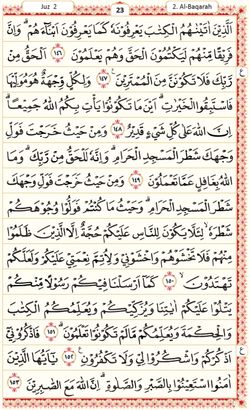 Juz 2
23
2. Al-Baqarah
اَلَّذِيْنَ اٰتَيْنٰهُمُ الْكِتٰبَ يَعْرِفُوْنَهٗ كَمَا يَعْرِفُوْنَ اَبْنَآءَهُمْ ؕ وَاِنَّ
فَرِيْقًا مِّنْهُمْ لَيَكْتُمُوْنَ الْحَقَّ وَهُمْ يَعْلَمُوْنَ ﴿۱۴۶﴾ اَلْحَقُّ مِنْ
رَّبِّكَ فَلَا تَكُوْنَنَّ مِنَ الْمُمْتَرِيْنَ ﴿۱۴۷﴾ وَلِكُلٍّ وِّجْهَةٌ هُوَ مُوَلِّيْهَا
فَاسْتَبِقُوا الْخَيْرٰتِ ؕ اَيْنَ مَا تَكُوْنُوْا يَاْتِ بِكُمُ اللّٰهُ جَمِيْعًا ؕ
اِنَّ اللّٰهَ عَلٰى كُلِّ شَيْءٍ قَدِيْرٌ ﴿۱۴۸﴾ وَمِنْ حَيْثُ خَرَجْتَ فَوَلِّ
وَجْهَكَ شَطْرَ الْمَسْجِدِ الْحَرَامِ ؕ وَاِنَّهٗ لَلْحَقُّ مِنْ رَّبِّكَ ؕ وَمَا
اللّٰهُ بِغَافِلٍ عَمَّا تَعْمَلُوْنَ ﴿۱۴۹﴾ وَمِنْ حَيْثُ خَرَجْتَ فَوَلِّ وَجْهَكَ
شَطْرَ الْمَسْجِدِ الْحَرَامِ ؕ وَحَيْثُ مَا كُنْتُمْ فَوَلُّوْا وُجُوْهَكُمْ
شَطْرَهٗ ۙ لِئَلَّا يَكُوْنَ لِلنَّاسِ عَلَيْكُمْ حُجَّةٌ ۙ اِلَّا الَّذِيْنَ ظَلَمُوْا
مِنْهُمْ فَلَا تَخْشَوْهُمْ وَاخْشَوْنِيْ وَلِاُتِمَّ نِعْمَتِيْ عَلَيْكُمْ وَلَعَلَّكُمْ
تَهْتَدُوْنَ ﴿۱۵۰﴾ كَمَآ اَرْسَلْنَا فِيْكُمْ رَسُوْلًا مِّنْكُمْ
يَتْلُوْا عَلَيْكُمْ اٰيٰتِنَا وَيُزَكِّيْكُمْ وَيُعَلِّمُكُمُ الْكِتٰبَ
وَالْحِكْمَةَ وَيُعَلِّمُكُمْ مَّا لَمْ تَكُوْنُوْا تَعْلَمُوْنَ ﴿۱۵۱﴾ فَاذْكُرُوْنِيْٓ
اَذْكُرْكُمْ وَاشْكُرُوْا لِيْ وَلَا تَكْفُرُوْنِ ﴿۱۵۲﴾ يٰٓاَيُّهَا الَّذِيْنَ
اٰمَنُوا اسْتَعِيْنُوْا بِالصَّبْرِ وَالصَّلٰوةِ ؕ اِنَّ اللّٰهَ مَعَ الصّٰبِرِيْنَ ﴿۱۵۳﴾